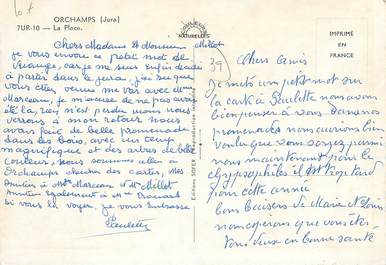 ORCHAMPS (Jura)
7UR-10 — La Place.
NATURELLES
IMPRIMÉ
EN
FRANCE
39
Editions SOFER
Chers Madame et Monsieur
je vous envoie ce petit mot de
car je me suis enfin décidé
à partir dans le jura, j'ai su que
vous étiez venus me voir avec Mme
Marceau, je m'excuse de ne pas avoir
été la, rien n'est perdu nous nous
verrons à mon retour nous
avons fait de belle promenade
dans les bois, avec un temps
magnifique et des arbres de belle
couleur, nous sommes allés à
Orchamps chercher des cartes, Mes
Amitiés à Mme Marceau et Mme Millet
Amitiés également à Mme
si vous la voyez, je vous embrasse
Paulette
Chers Amis
Je mets un petit mot sur
la carte à Paulette nous avons
bien pensé à vous dans nos
promenades nous aurions bien
voulu que vous soyez parmi
nous maintenant pour la
il est trop tard
pour cette année
Bons Baisers de Marie
nous espérons que vous êtes
Tous deux en bonne santé